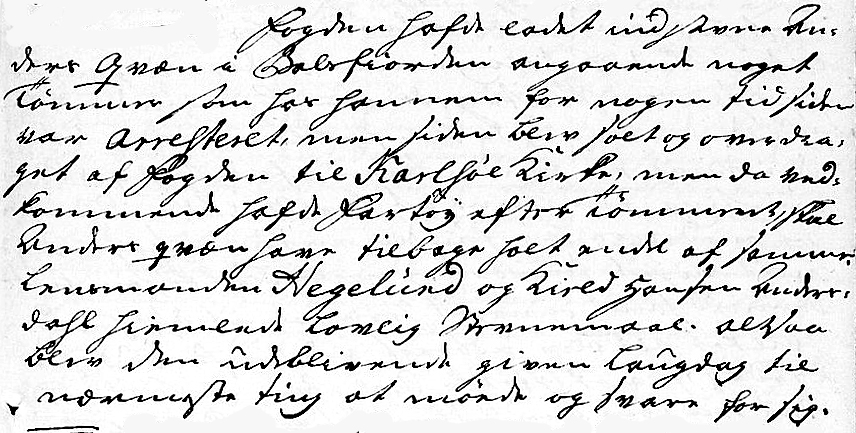 Fogden hafde ladet indstevne An-
ders Qvæn i Balsfiorden angaaende noget
Tömmer som hos hannem for nogen tid siden
var Arresteret, men siden blev solt og overdra-
get af Fogden til Karlsöe Kirke, men da ved-
kommende hafde Fartöy efter Tömmeret, skal
Anders qvæn have tilbage holt endel af samme.
Lensmanden Hegelund og Kield Hansen Anders-
dahl hiemlede Lovlig Stevnemaal. altsaa
blev den udeblivende given Laugdag til
nærmeste ting at möede og svare for sig.